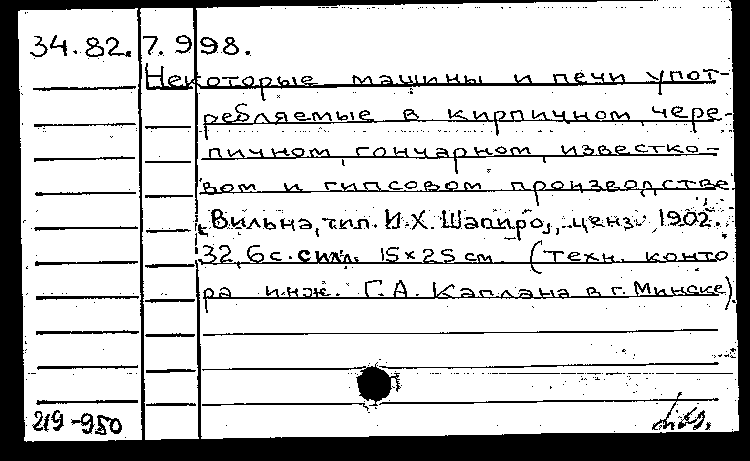 34.82.7.998.
Некоторые машины и печи упот-
ребляемые в кирпичном, чере-
пичном, гончарном, известко-
вом и гипсовом производстве
Вильна, тип. И.Х. Шапиро, ценз. 1902.
32, 6с. силл. 15×25 см. (Техн. конто
ра инж. Г.А. Каплана в г. Минске)
219-950